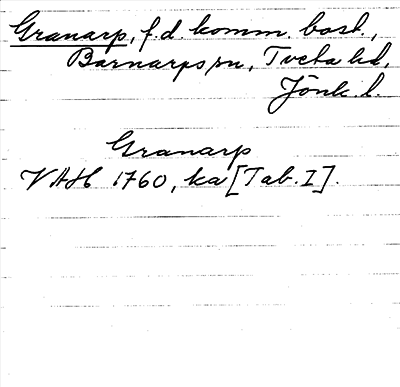 Granarp, f.d. komm. bost.,
Barnarps sn, Tveta hd,
Jönk. l.
Granarp
VAH 1760, ka [Tab. I].